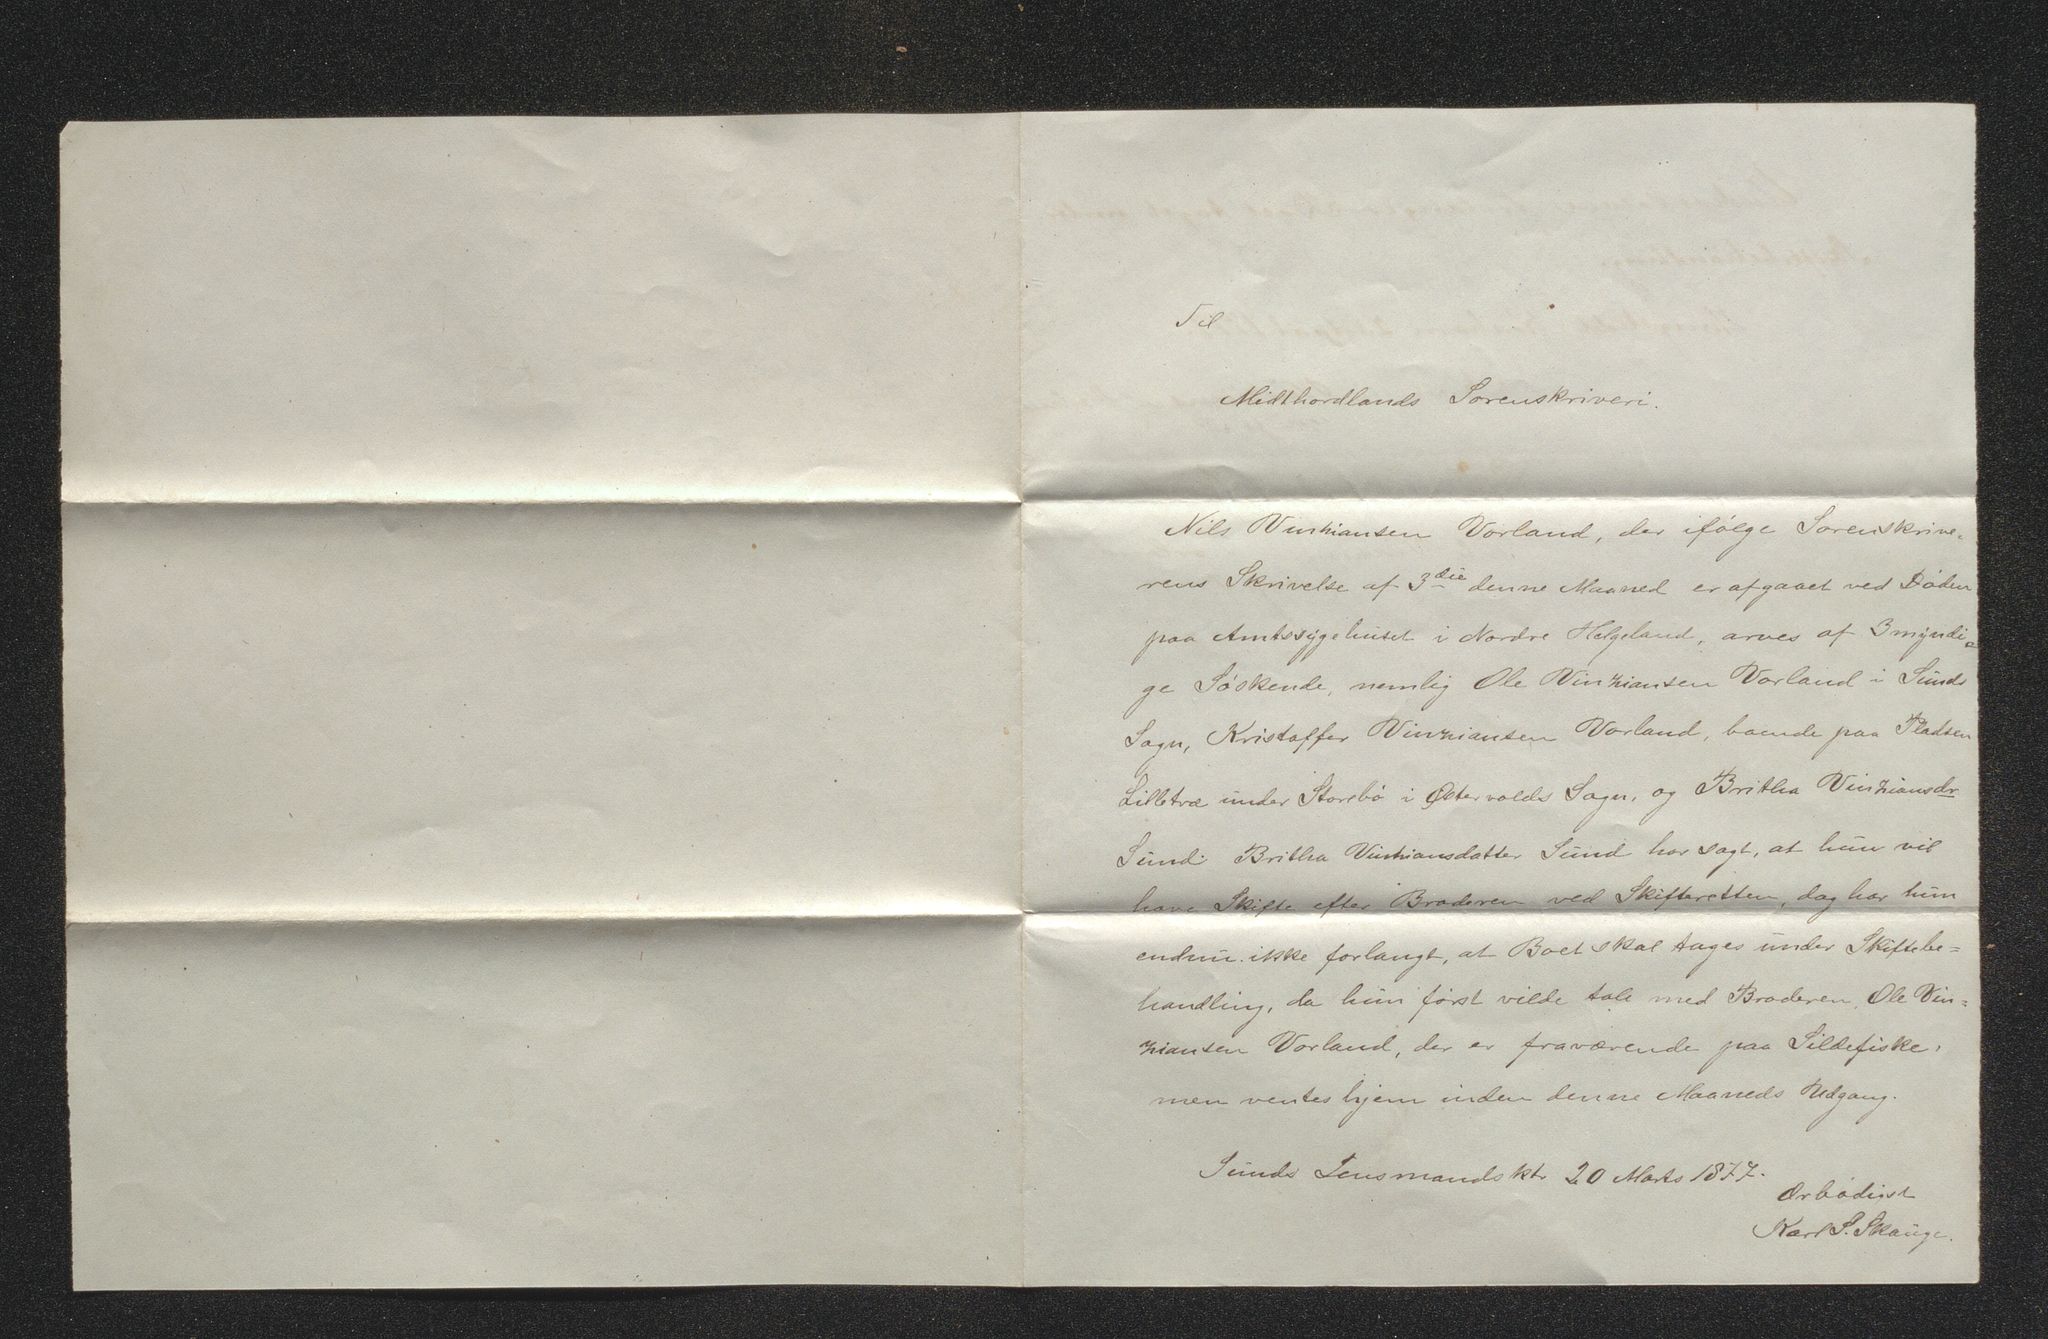 Til
Midthordlands Sorenskriveri.
Nils Vinziansen Vorland, der ifölge Sorenskrive-
rens Skrivelse af 3die denne Maaned er afgaaet ved Döden
paa Amtssygehuset i Nordre Helgeland, arves af 3 myndi=
ge Söskende, nemlig Ole Vinziansen Vorland i Sunds
Sogn, Kristoffer Vinziansen Vorland, boende paa Pladsen
Lilletræ under Storebö i Østervolds Sogn, og Britha Vinziansdr
Sund. Britha Vinziansdatter Sund har sagt, at hun vil
have Skifte efter Broderen ved Skifteretten, dog har hun
endnu ikke forlangt, at Boet skal tages under Skiftebe=
handling, da hun först vilde tale med Broderen, Ole Vin=
ziansen Vorland, der er fraværende paa Sildefiske,
men ventes hjem inden denne Maaneds Udgang.
Sunds Lensmandsktr 20 Marts 1877.
Ærbödigst
Karl S. Skauge.